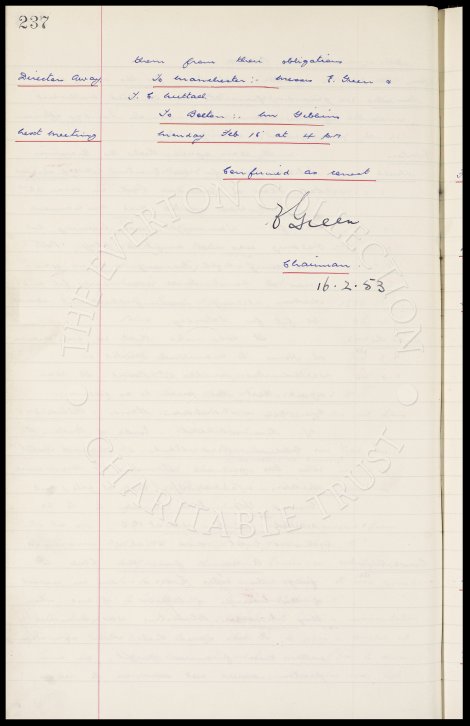 237
them from their obligations
Director Away. To Manchester:- Messrs E. Green &
T. C. Nuttall
To Bolton:- Mr Gibbins
Next Meeting Monday Feb 16 at 4 PM
Confirmed as correct
E Green
Chairman.
16.2.53
THE EVERTON COLLECTION
CHARITABLE TRUST